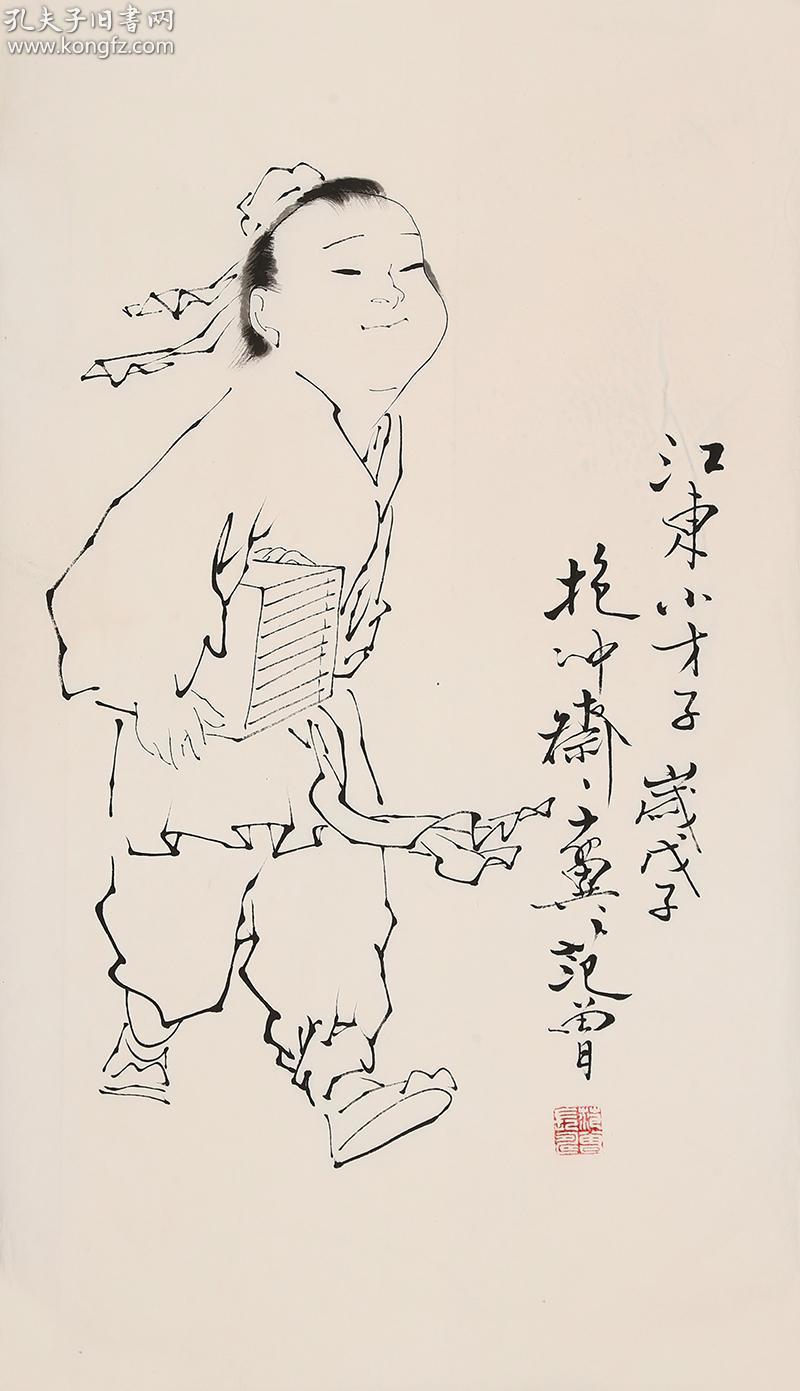 孔夫子旧書网
www.kongfz.com
江東小才子 歲戊子
抱冲齋、十翼、范曾